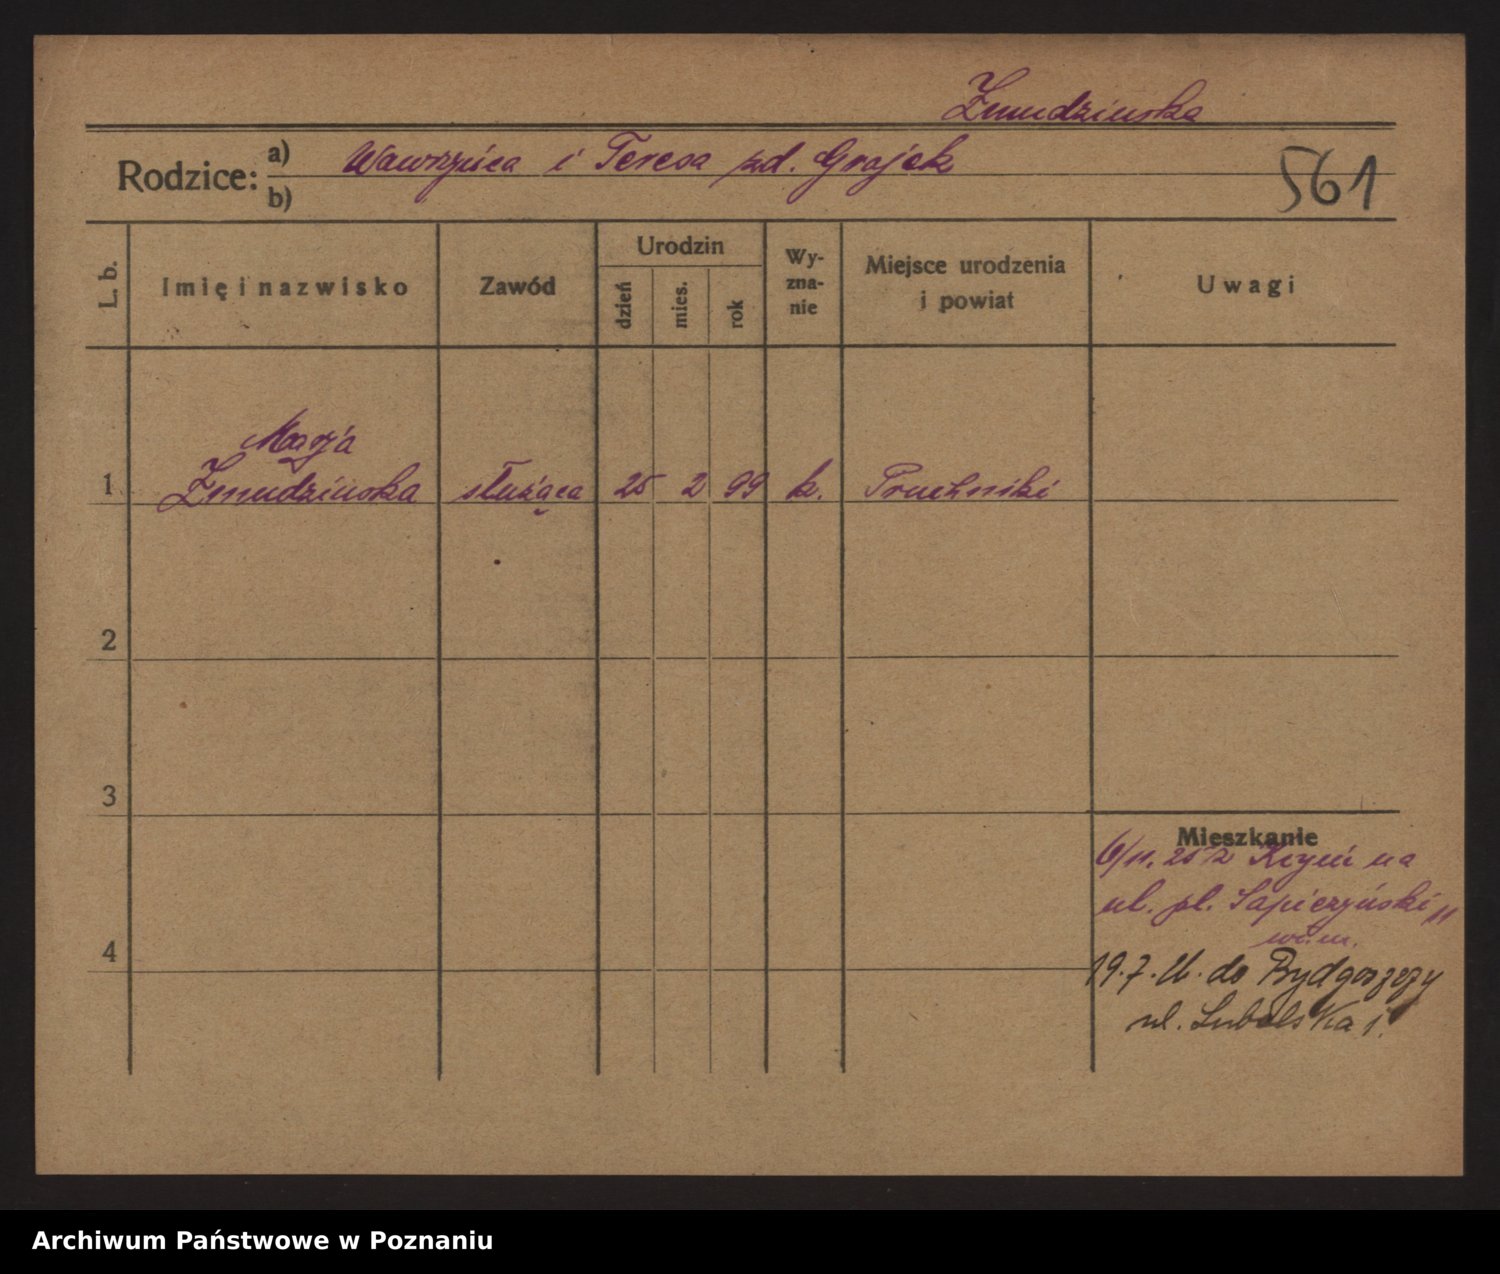 Zmudzinska
Rodzice: a) Wawrzyńca i Teresa zd. Grajek
b)
561
L. b.
Imię i nazwisko
Zawód
Urodzin
dzień
mies.
rok
Wy-
zna-
nie
Miejsce urodzenia
i powiat
Uwagi
Marja
1 Zmudzinska służąca 25 2 99 k. Pruchniki
2
3
4
Mieszkanie
6/11. 25 z Kcyni na
ul. pl. Sapieżyński 11
19.7. do Bydgoszczy
ul. Lubelska 1.
Archiwum Państwowe w Poznaniu